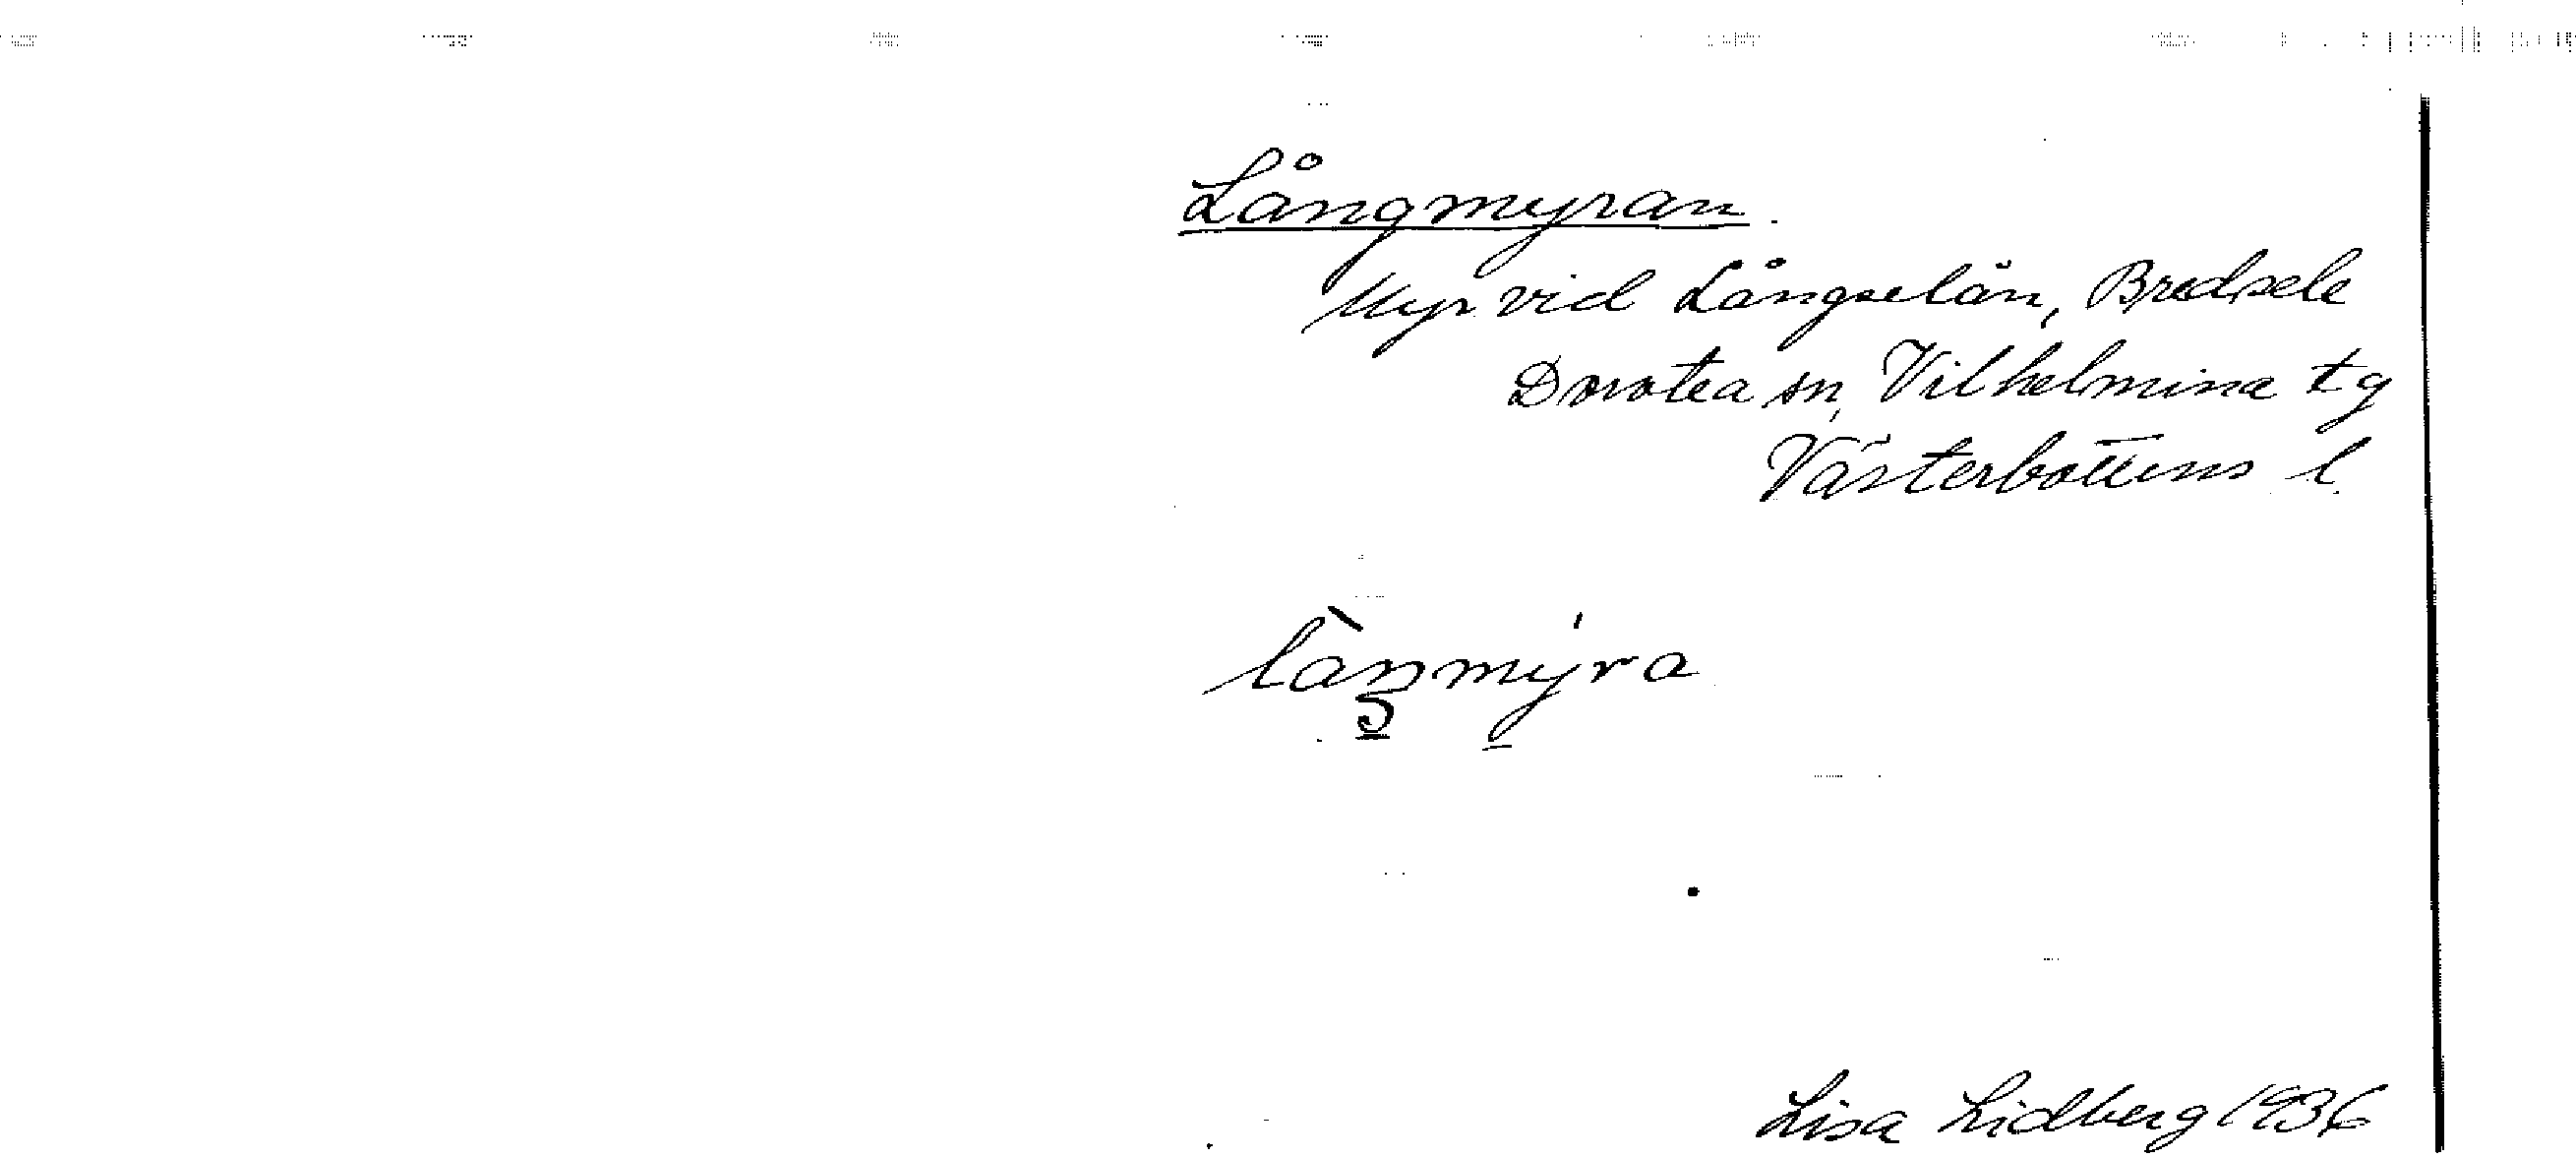 Långmyran.
Myr vid Långselån, Bredsele
Dorotea sn, Vilhelmina tg
Västerbottens l.
Lisa Lidberg 1936